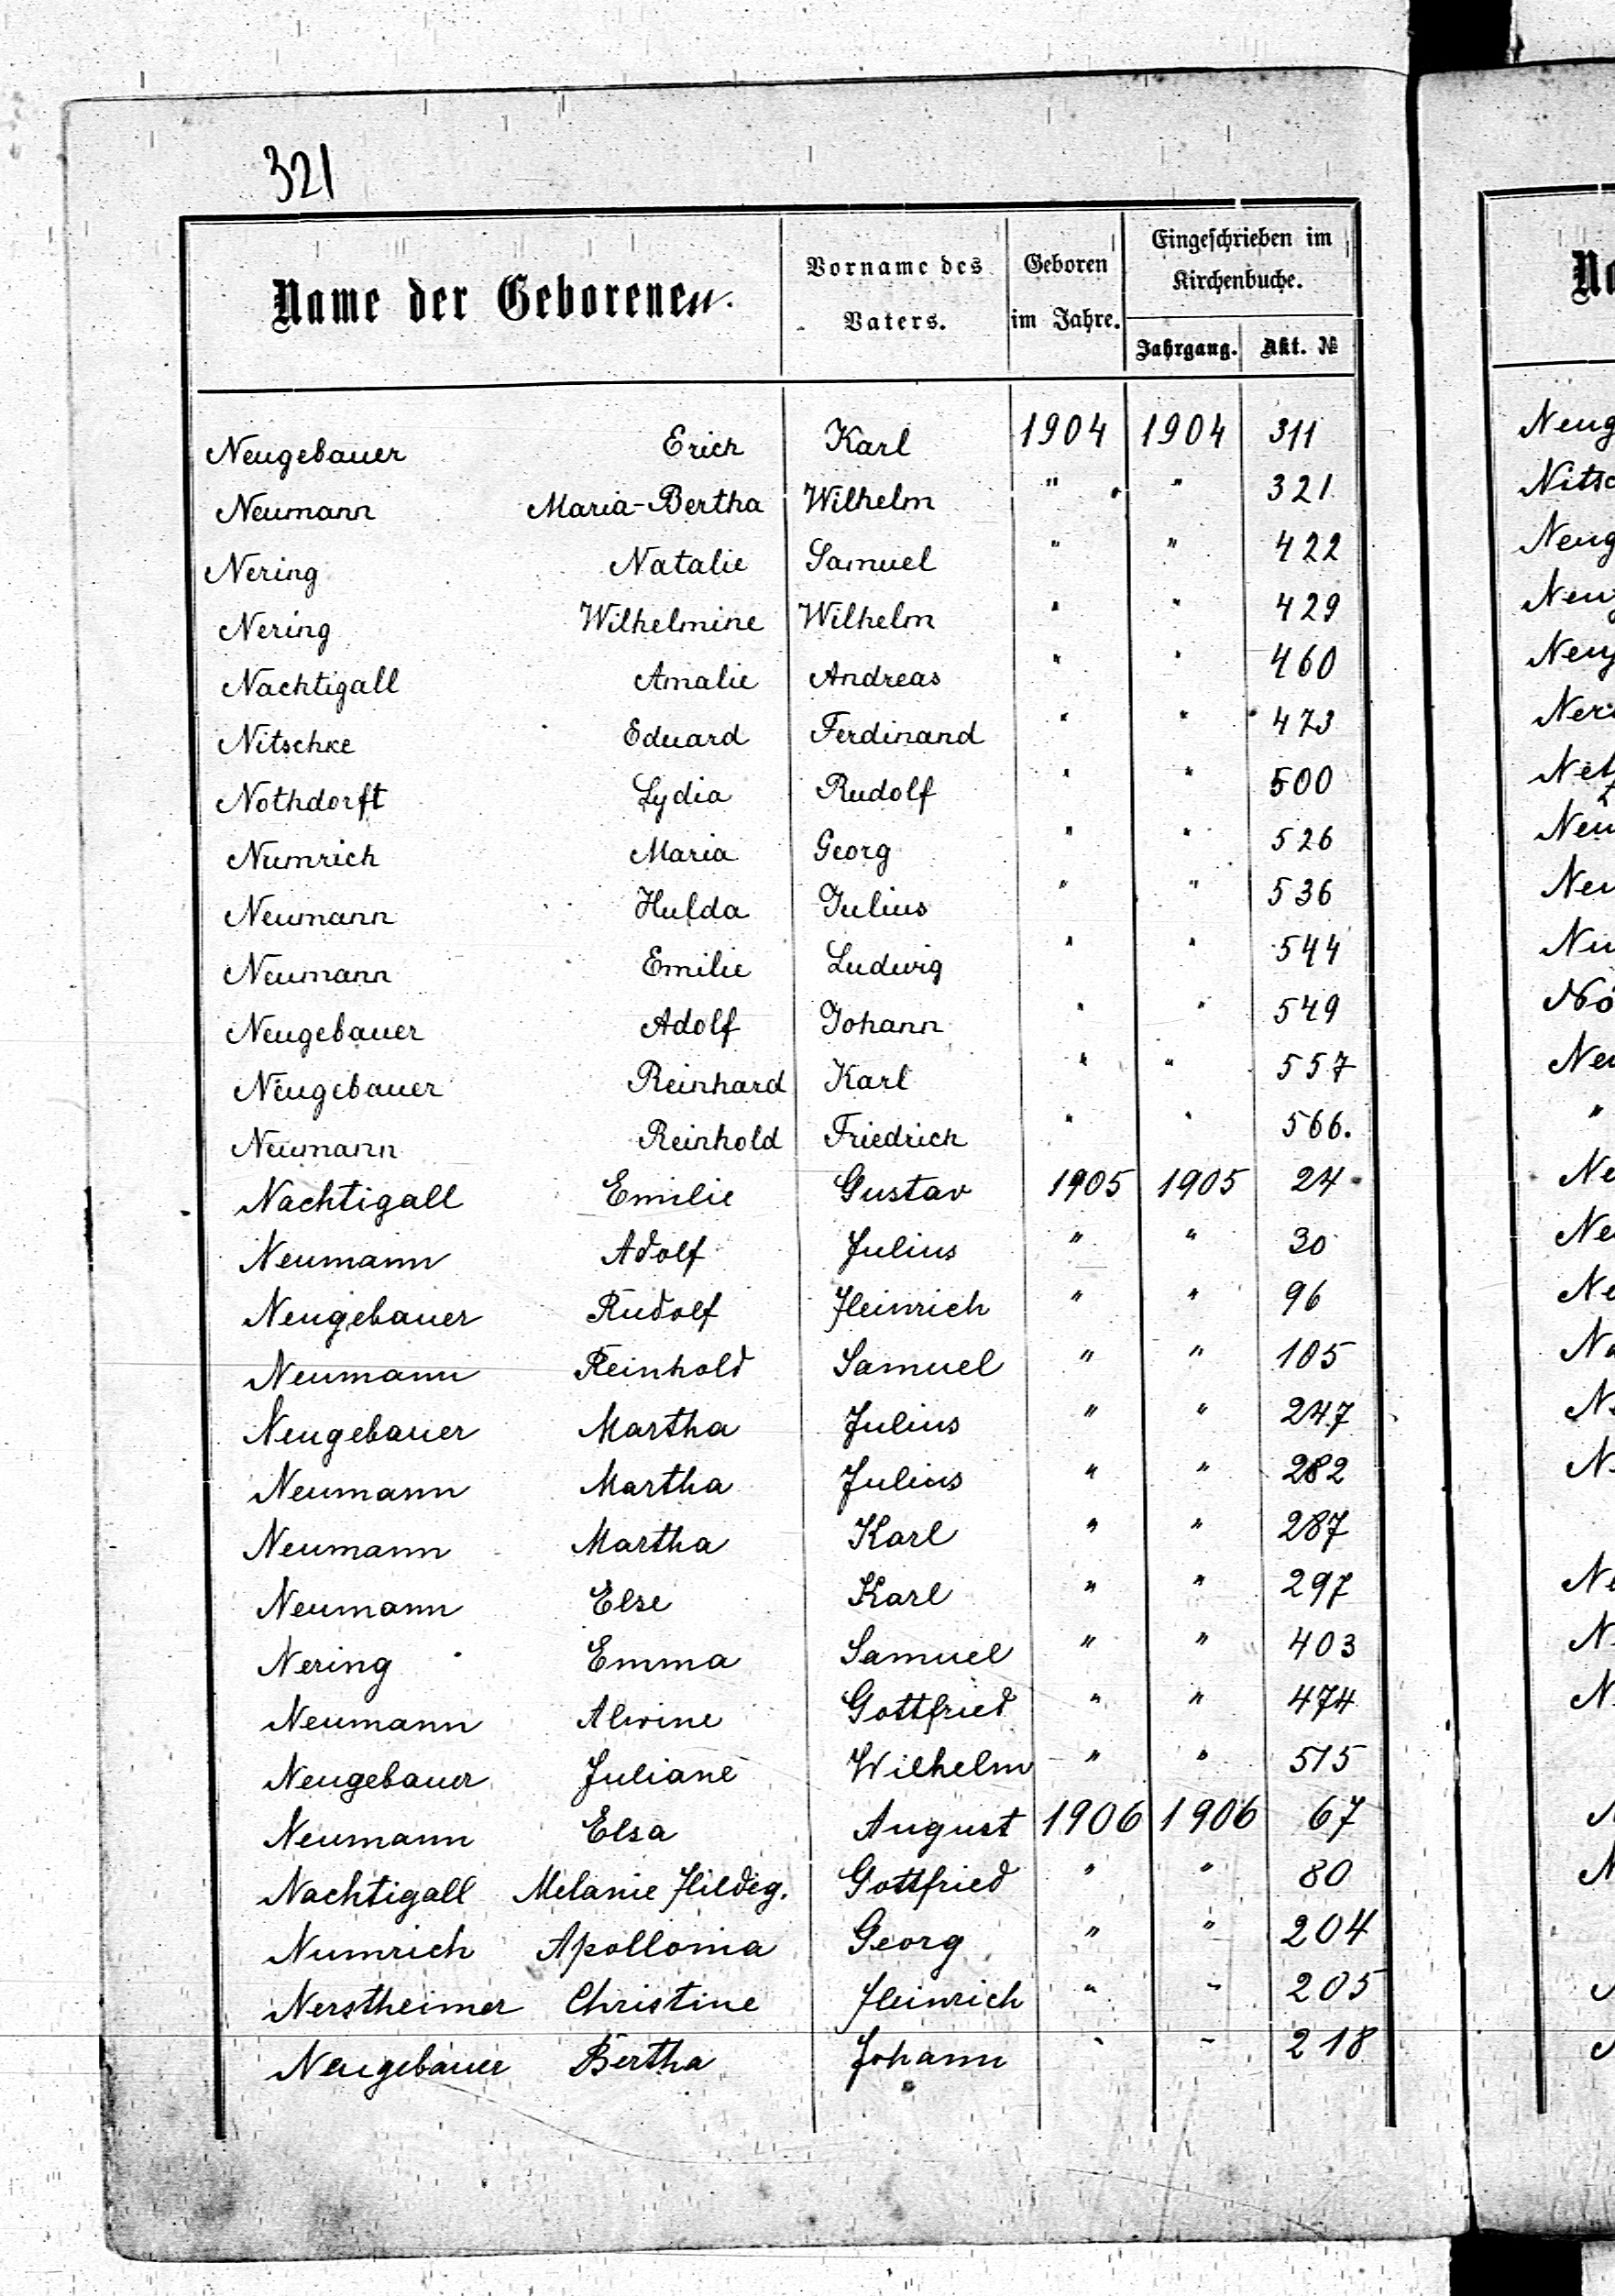 321
Name der Geborenen.
Vorname des Vaters.
Geboren im Jahre.
Eingeschrieben im Kirchenbuche.
Jahrgang. Akt. №
Neugebauer Erich Karl 1904 1904 311
Neumann Maria-Bertha Wilhelm " " 321
Nering Natalie Samuel " " 422
Nering Wilhelmine Wilhelm " " 429
Nachtigall Amalie Andreas " " 460
Nitschke Eduard Ferdinand " " 473
Nothdorft Lydia Rudolf " " 500
Numrich Maria Georg " " 526
Neumann Hulda Julius " " 536
Neumann Emilie Ludwig " " 544
Neugebauer Adolf Johann " " 549
Neugebauer Reinhard Karl " " 557
Neumann Reinhold Friedrich " " 566.
Nachtigall Emilie Gustav 1905 1905 24
Neumann Adolf Julius " " 30
Neugebauer Rudolf Heinrich " " 96
Neumann Reinhold Samuel " " 105
Neugebauer Martha Julius " " 247
Neumann Martha Julius " " 282
Neumann Martha Karl " " 287
Neumann Else Karl " " 297
Nering Emma Samuel " " 403
Neumann Alwine Gottfried " " 474
Neugebauer Juliane Wilhelm " " 515
Neumann Elsa August 1906 1906 67
Nachtigall Melanie Hildeg. Gottfried " " 80
Numrich Apollonia Georg " " 204
Nerstheimer Christine Heinrich " " 205
Neugebauer Bertha Johann " " 218